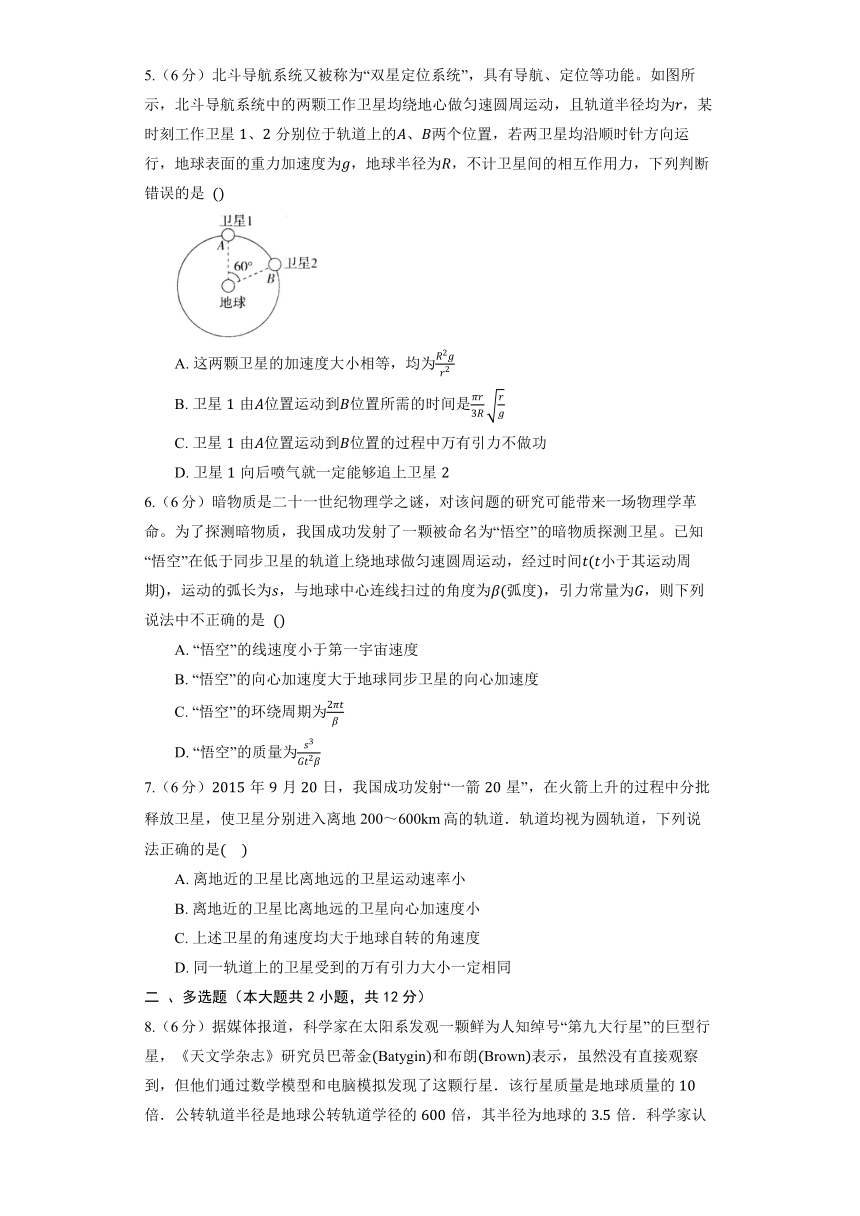 5.（6 分）北斗导航系统又被称为“双星定位系统”，具有导航、定位等功能。如图所
示，北斗导航系统中的两颗工作卫星均绕地心做匀速圆周运动，且轨道半径均为r，某
时刻工作卫星 1、2 分别位于轨道上的A、B两个位置，若两卫星均沿顺时针方向运
行，地球表面的重力加速度为g，地球半径为R，不计卫星间的相互作用力，下列判断
错误的是 ()
卫星1
A
60°
卫星2
B
地球
A. 这两颗卫星的加速度大小相等，均为\frac{R^2g}{r^2}
B. 卫星 1 由A位置运动到B位置所需的时间是\frac{πr}{3R}\sqrt{\frac{r}{g}}
C. 卫星 1 由A位置运动到B位置的过程中万有引力不做功
D. 卫星 1 向后喷气就一定能够追上卫星 2
6.（6 分）暗物质是二十一世纪物理学之谜，对该问题的研究可能带来一场物理学革
命。为了探测暗物质，我国成功发射了一颗被命名为“悟空”的暗物质探测卫星。已知
“悟空”在低于同步卫星的轨道上绕地球做匀速圆周运动，经过时间t(t小于其运动周
期)，运动的弧长为s，与地球中心连线扫过的角度为β(弧度)，引力常量为G，则下列
说法中不正确的是 ()
A. “悟空”的线速度小于第一宇宙速度
B. “悟空”的向心加速度大于地球同步卫星的向心加速度
C. “悟空”的环绕周期为\frac{2πt}{β}
D. “悟空”的质量为\frac{s^3}{Gt^2β}
7.（6 分）2015 年 9 月 20 日，我国成功发射“一箭 20 星”，在火箭上升的过程中分批
释放卫星，使卫星分别进入离地 200～600km 高的轨道．轨道均视为圆轨道，下列说
法正确的是( )
A. 离地近的卫星比离地远的卫星运动速率小
B. 离地近的卫星比离地远的卫星向心加速度小
C. 上述卫星的角速度均大于地球自转的角速度
D. 同一轨道上的卫星受到的万有引力大小一定相同
二 、多选题（本大题共 2 小题，共 12 分）
8.（6 分）据媒体报道，科学家在太阳系发观一颗鲜为人知绰号“第九大行星”的巨型行
星，《天文学杂志》研究员巴蒂金(Batygin)和布朗(Brown)表示，虽然没有直接观察
到，但他们通过数学模型和电脑模拟发现了这颗行星．该行星质量是地球质量的 10
倍．公转轨道半径是地球公转轨道学径的 600 倍，其半径为地球的 3.5 倍．科学家认